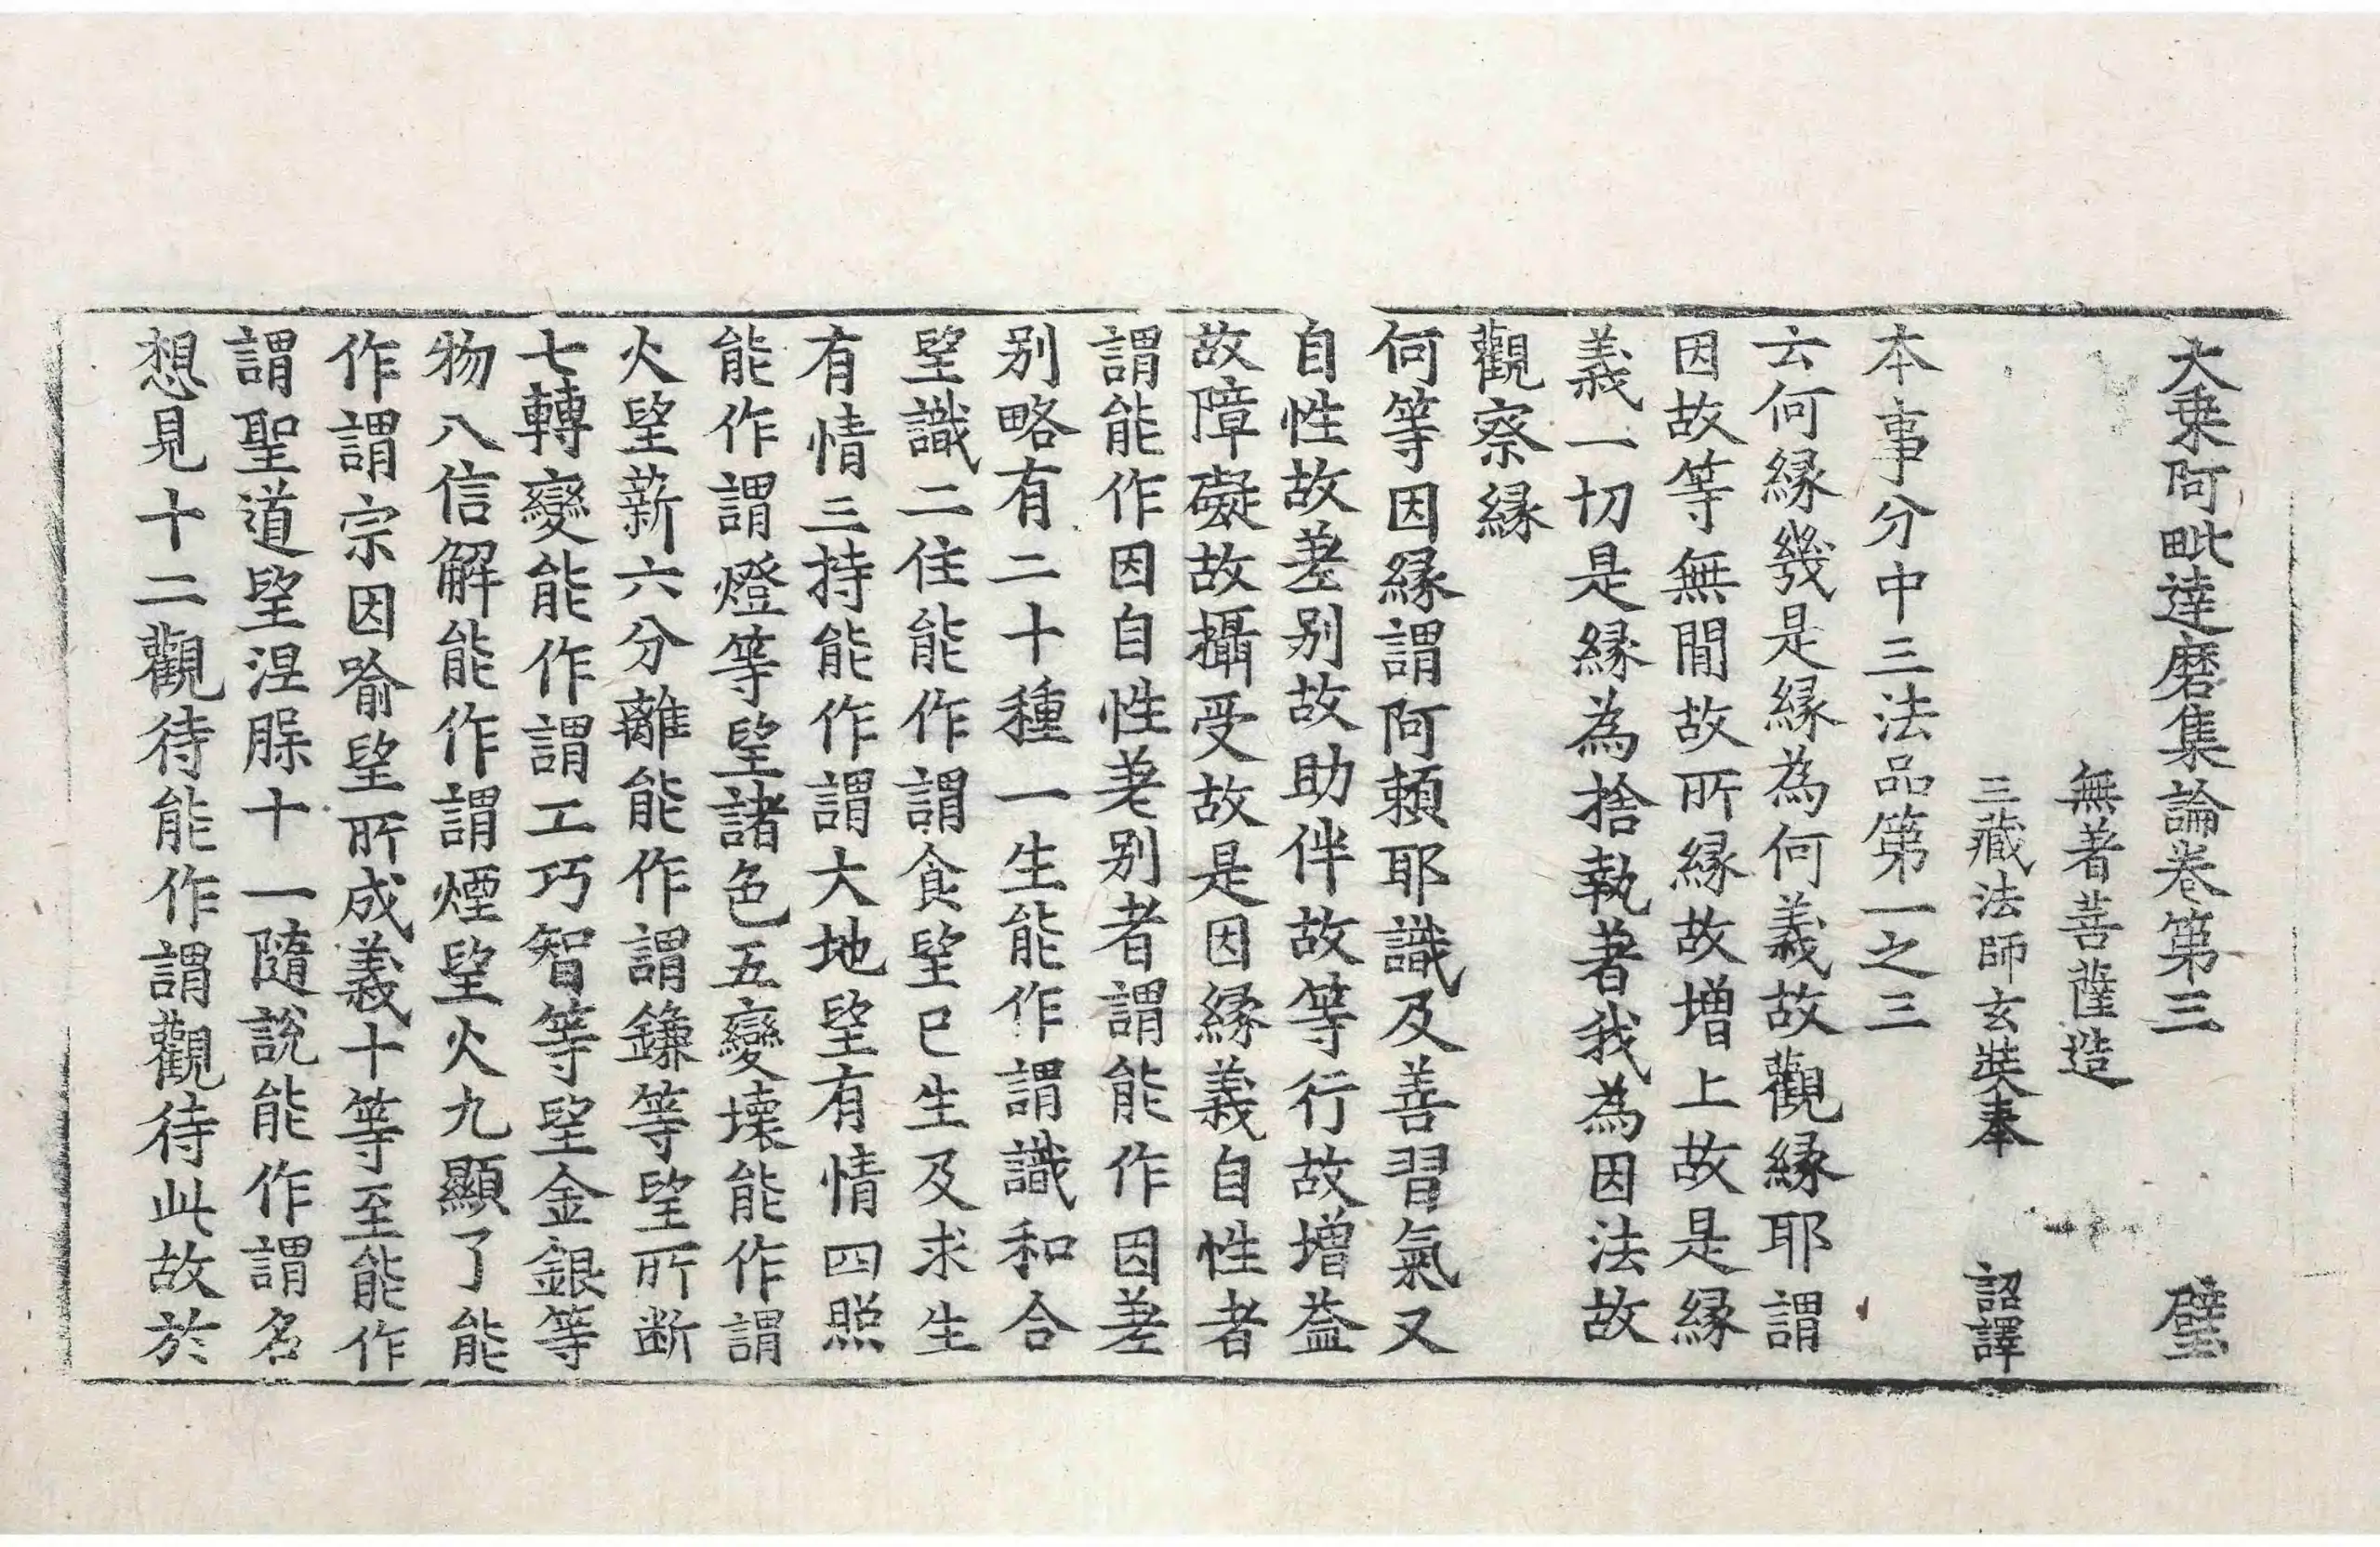 大乗阿毗達磨集論卷第三　璧
無著菩薩造
三藏法師玄奘奉　詔譯
本事分中三法品第一之三
云何縁幾是縁為何義故觀縁耶謂
因故等無間故所縁故増上故是縁
義一切是縁為捨執著我為因法故
觀察縁
何等因縁謂阿頼耶識及善習氣又
自性故差别故助伴故等行故増益
故障礙故攝受故是因縁義自性者
謂能作因自性差别者謂能作因差
别略有二十種一生能作謂識和合
望識二住能作謂食望已生及求生
有情三持能作謂大地望有情四照
能作謂燈等望諸色五變壞能作謂
火望薪六分離能作謂鎌等望所断
七轉變能作謂工巧智等望金銀等
物八信解能作謂煙望火九顯了能
作謂宗因喻望所成義十等至能作
謂聖道望涅脲十一隨說能作謂名
想見十二觀待能作謂觀待此故於